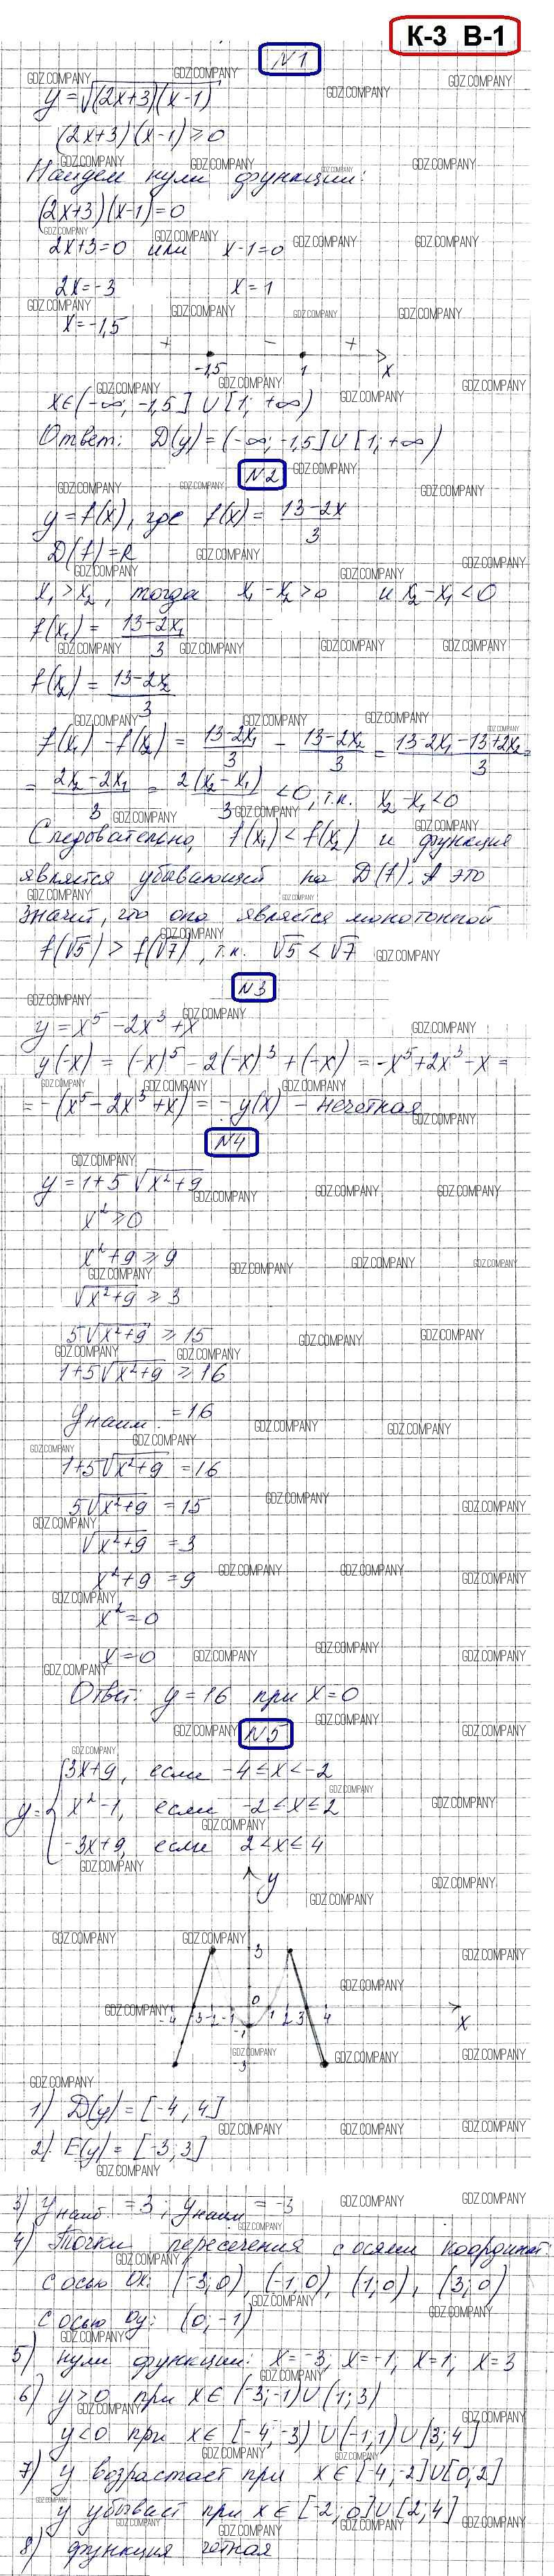 К-3 В-1
N1
y=√(2x+3)(x-1)
(2x+3)(x-1)≥0
Найдем нули функции:
(2x+3)(x-1)=0
2x+3=0 или x-1=0
2x=-3 x=1
x=-1,5
+ - +
-1,5 1 x
x∈(-∞; -1,5]∪[1; +∞)
Ответ: D(y)=(-∞; -1,5]∪[1; +∞)
N2
y=f(x), где f(x)= (13-2x)/3
D(f)=R
x₁>x₂, тогда x₁-x₂>0 и x₂-x₁<0
f(x₁) = (13-2x₁)/3
f(x₂) = (13-2x₂)/3
f(x₁)-f(x₂) = (13-2x₁)/3 - (13-2x₂)/3 = (13-2x₁-13+2x₂)/3 =
= (2x₂-2x₁)/3 = 2(x₂-x₁)/3 <0, т.к. x₂-x₁<0
Следовательно, f(x₁)<f(x₂) и функция
является убывающей на D(f). А это
значит, что она является монотонной
f(√5)>f(√7), т.к. √5<√7
N3
y=x⁵-2x³+x
y(-x) = (-x)⁵-2(-x)³+(-x) = -x⁵+2x³-x =
= -(x⁵-2x³+x) = -y(x) - нечетная
N4
y=1+5√x²+9
x²≥0
x²+9≥9
√x²+9 ≥3
5√x²+9 ≥15
1+5√x²+9 ≥16
yнаим. =16
1+5√x²+9 =16
5√x²+9 =15
√x²+9 =3
x²+9 =9
x²=0
x=0
Ответ: y=16 при x=0
N5
y={ 3x+9, если -4≤x<-2
x²-1, если -2≤x≤2
-3x+9, если 2<x≤4
y
3
0
-4 -3 -2 -1 1 2 3 4 x
-1
-3
1) D(y)=[-4; 4]
2) E(y)=[-3; 3]
3) yнаиб =3; yнаим =-3
4) Точки пересечения с осями координат:
с осью Ox: (-3;0), (-1;0), (1;0), (3;0)
с осью Oy: (0;-1)
5) нули функции: x=-3; x=-1; x=1; x=3
6) y>0 при x∈(-3;-1)∪(1;3)
y<0 при x∈[-4;-3)∪(-1;1)∪(3;4]
7) y возрастает при x∈[-4;-2]∪[0;2]
y убывает при x∈[-2;0]∪[2;4]
8) функция четная